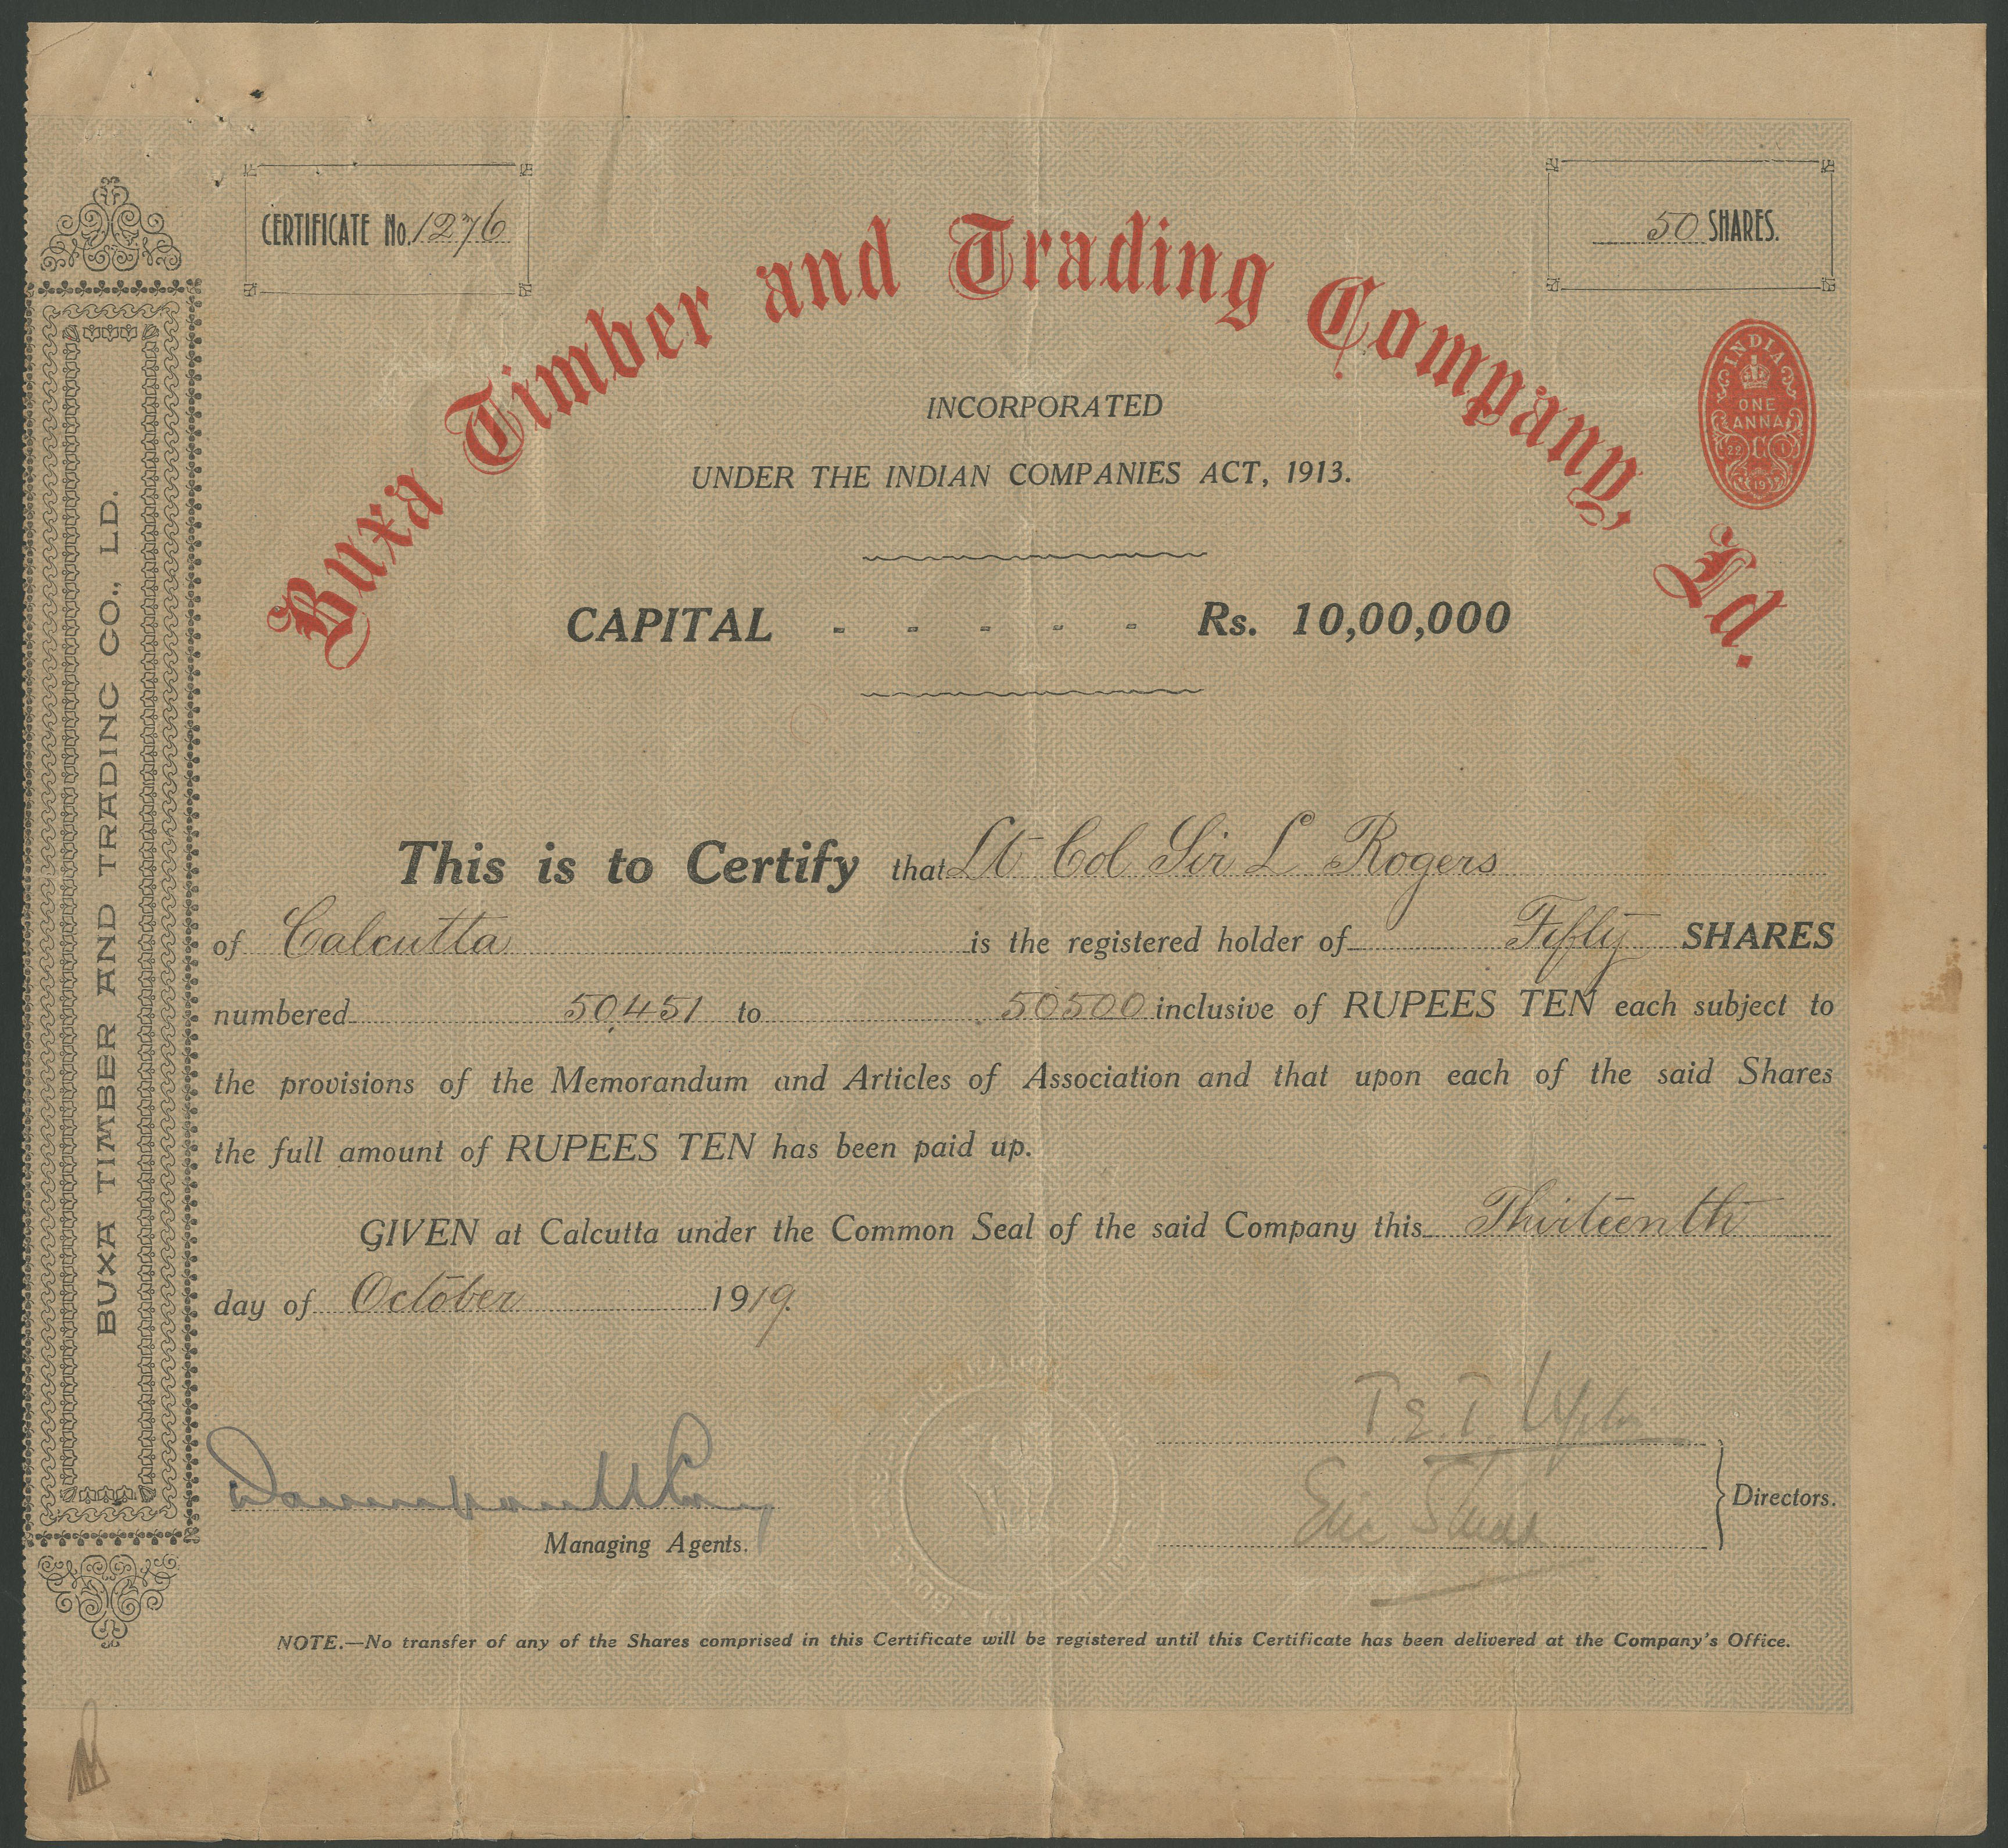 CERTIFICATE No. 1276
50 SHARES.
Buxa Timber and Trading Company, Ld.
INDIA
ONE
ANNA
INCORPORATED
UNDER THE INDIAN COMPANIES ACT, 1913.
CAPITAL - - - - - Rs. 10,00,000
This is to Certify that Lt Col Sir L Rogers
of Calcutta is the registered holder of Fifty SHARES
numbered 50,451 to 50500 inclusive of RUPEES TEN each subject to
the provisions of the Memorandum and Articles of Association and that upon each of the said Shares
the full amount of RUPEES TEN has been paid up.
GIVEN at Calcutta under the Common Seal of the said Company this Thirteenth
day of October 1919.
Managing Agents.
T. E. T.
Eric
Directors.
NOTE.—No transfer of any of the Shares comprised in this Certificate will be registered until this Certificate has been delivered at the Company's Office.
BUXA TIMBER AND TRADING CO., LD.